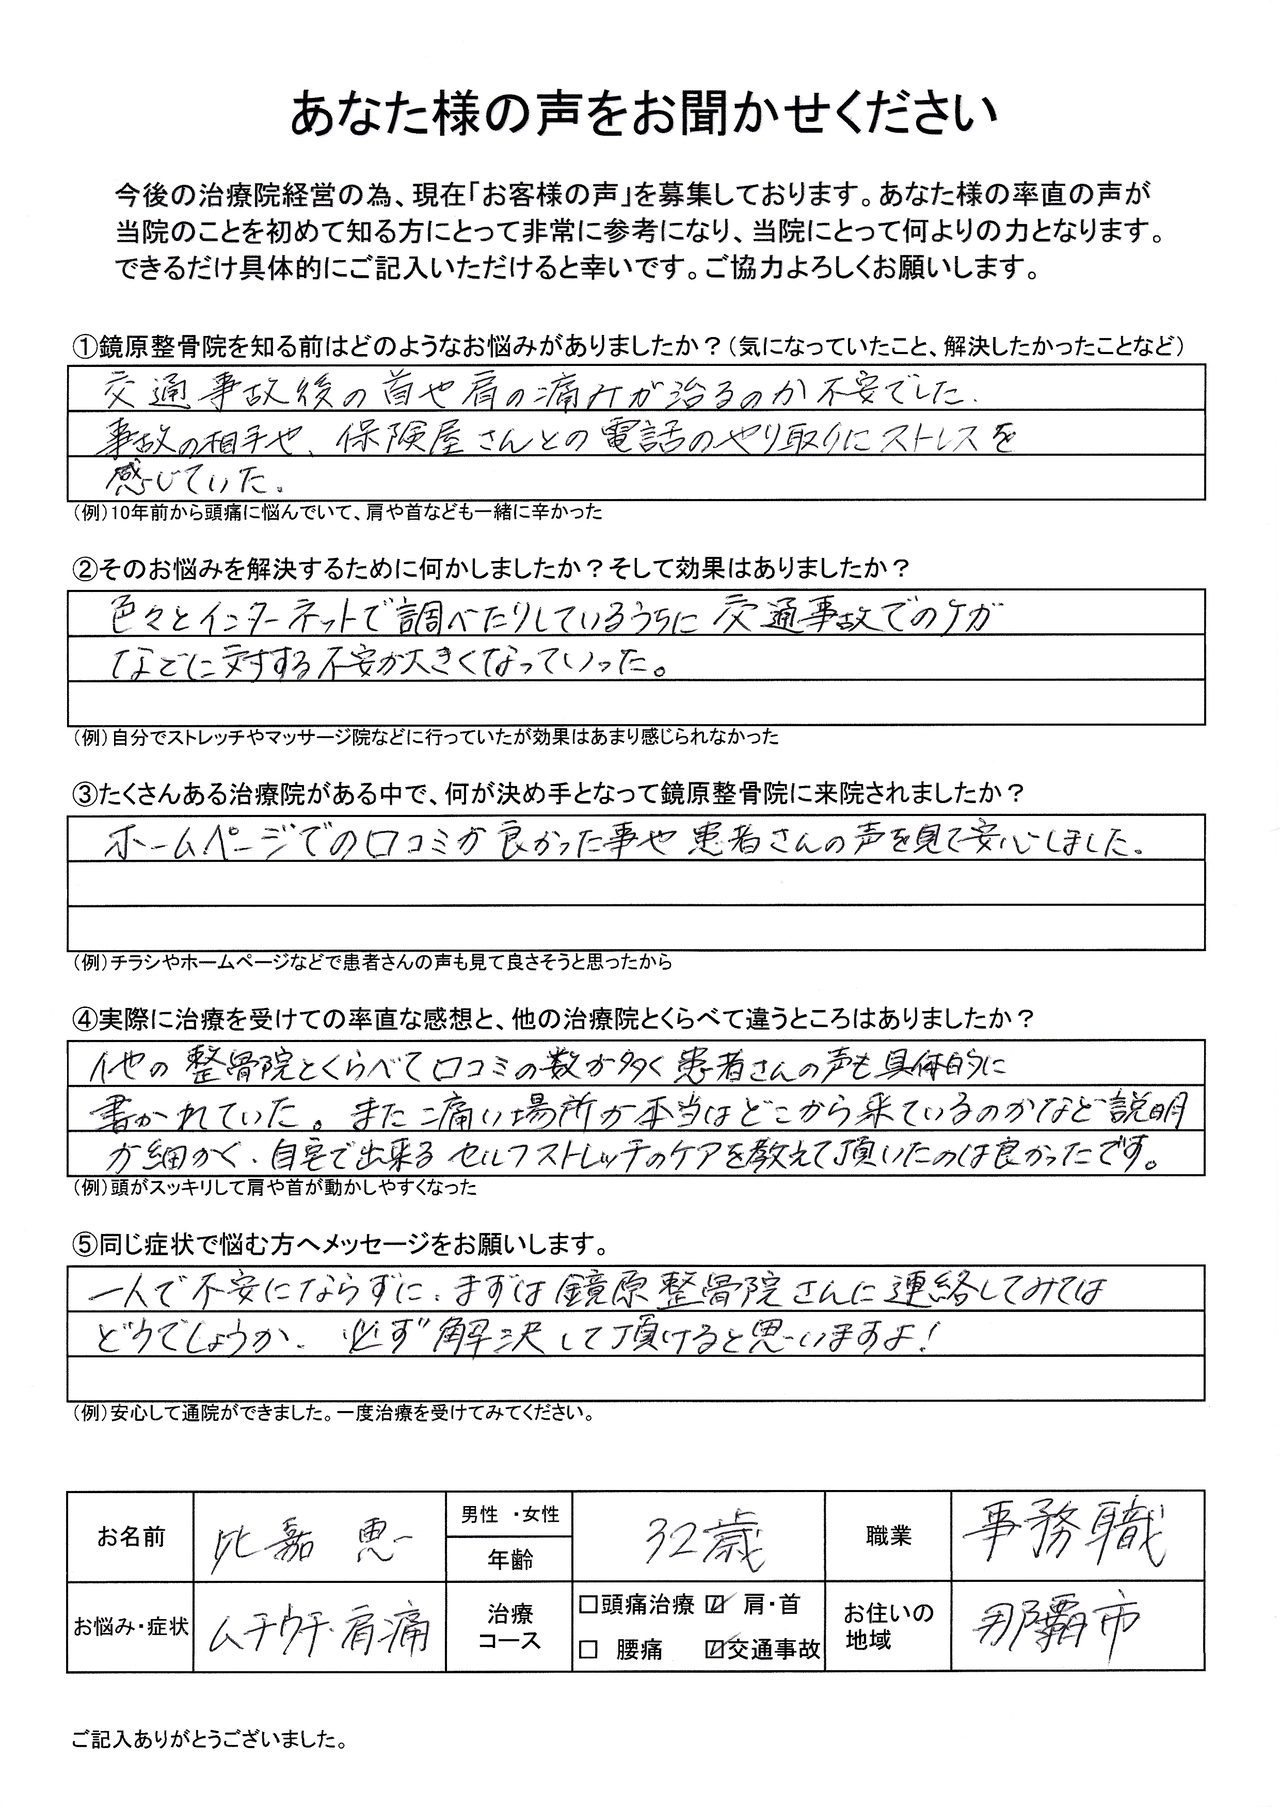 あなた様の声をお聞かせください
今後の治療院経営の為、現在「お客様の声」を募集しております。あなた様の率直の声が
当院のことを初めて知る方にとって非常に参考になり、当院にとって何よりの力となります。
できるだけ具体的にご記入いただけると幸いです。ご協力よろしくお願いします。
①鏡原整骨院を知る前はどのようなお悩みがありましたか？（気になっていたこと、解決したかったことなど）
交通事故後の首や肩の痛みが治るのか不安でした.
事故の相手や、保険屋さんとの電話のやり取りにストレスを
感じていた。
（例）10年前から頭痛に悩んでいて、肩や首なども一緒に辛かった
②そのお悩みを解決するために何かしましたか？そして効果はありましたか？
色々とインターネットで調べたりしているうちに交通事故でのケガ
などに対する不安が大きくなっていった。
（例）自分でストレッチやマッサージ院などに行っていたが効果はあまり感じられなかった
③たくさんある治療院がある中で、何が決め手となって鏡原整骨院に来院されましたか？
ホームページでの口コミが良かった事や患者さんの声を見て安心しました。
（例）チラシやホームページなどで患者さんの声も見て良さそうと思ったから
④実際に治療を受けての率直な感想と、他の治療院とくらべて違うところはありましたか？
他の整骨院とくらべて口コミの数が多く患者さんの声も具体的に
書かれていた。また、痛い場所が本当はどこから来ているのかなど説明
が細かく、自宅で出来るセルフストレッチのケアを教えて頂いたのは良かったです。
（例）頭がスッキリして肩や首が動かしやすくなった
⑤同じ症状で悩む方へメッセージをお願いします。
一人で不安にならずに、まずは鏡原整骨院さんに連絡してみては
どうでしょうか、必ず解決して頂けると思いますよ！
（例）安心して通院ができました。一度治療を受けてみてください。
お名前 比嘉 恵一 男性 ・女性 年齢 32歳 職業 事務職
お悩み・症状 ムチウチ・肩痛 治療コース □頭痛治療 ☑ 肩・首 □ 腰痛 ☑交通事故 お住いの地域 那覇市
ご記入ありがとうございました。